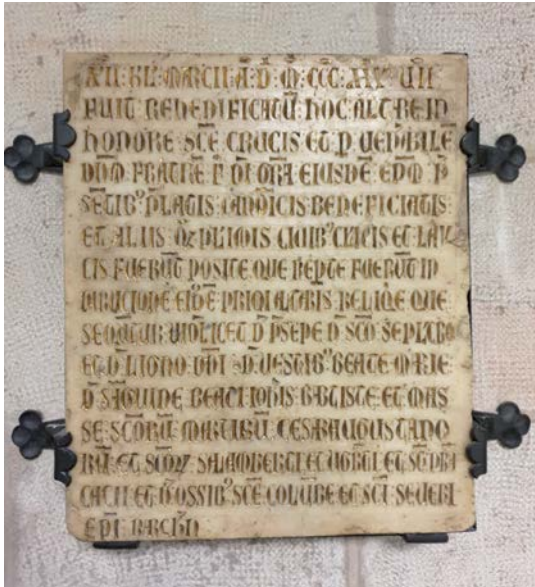 XII : KL : MARCII : A : D : M : CCC : XLV : VII
FUIT REHEDIFICATU HOC ALTRE IN
HONORE SCE CRUCIS ET P VENBILE
DNM FRATRE F DI GRA EIUSDE EPM P
SETIB' PLATIS CANOICIS BENEFICIATIS
ET ALIIS PLIMIS CIUIB' ET LAY
CIS FUERUT POSITE QUE REPTE FUERUT IN
EIDE ALTARIS RELIQE QUE
SEQUTUR UIDLICET D PSEPE D SCO SEPLCRO
ET D LIGNO DNI D UESTIB' BEATE MARIE
D SAGUINE BEATI IOHIS BABTISTE ET MAS
SE SCORU MARTIRU CESARAUGUSTANO
RU ET SALAMBERTI ET ET SCI PRA
CACII ET D OSSIB' SCE COLUBE ET SCI SEUERI
EPI BARCHN